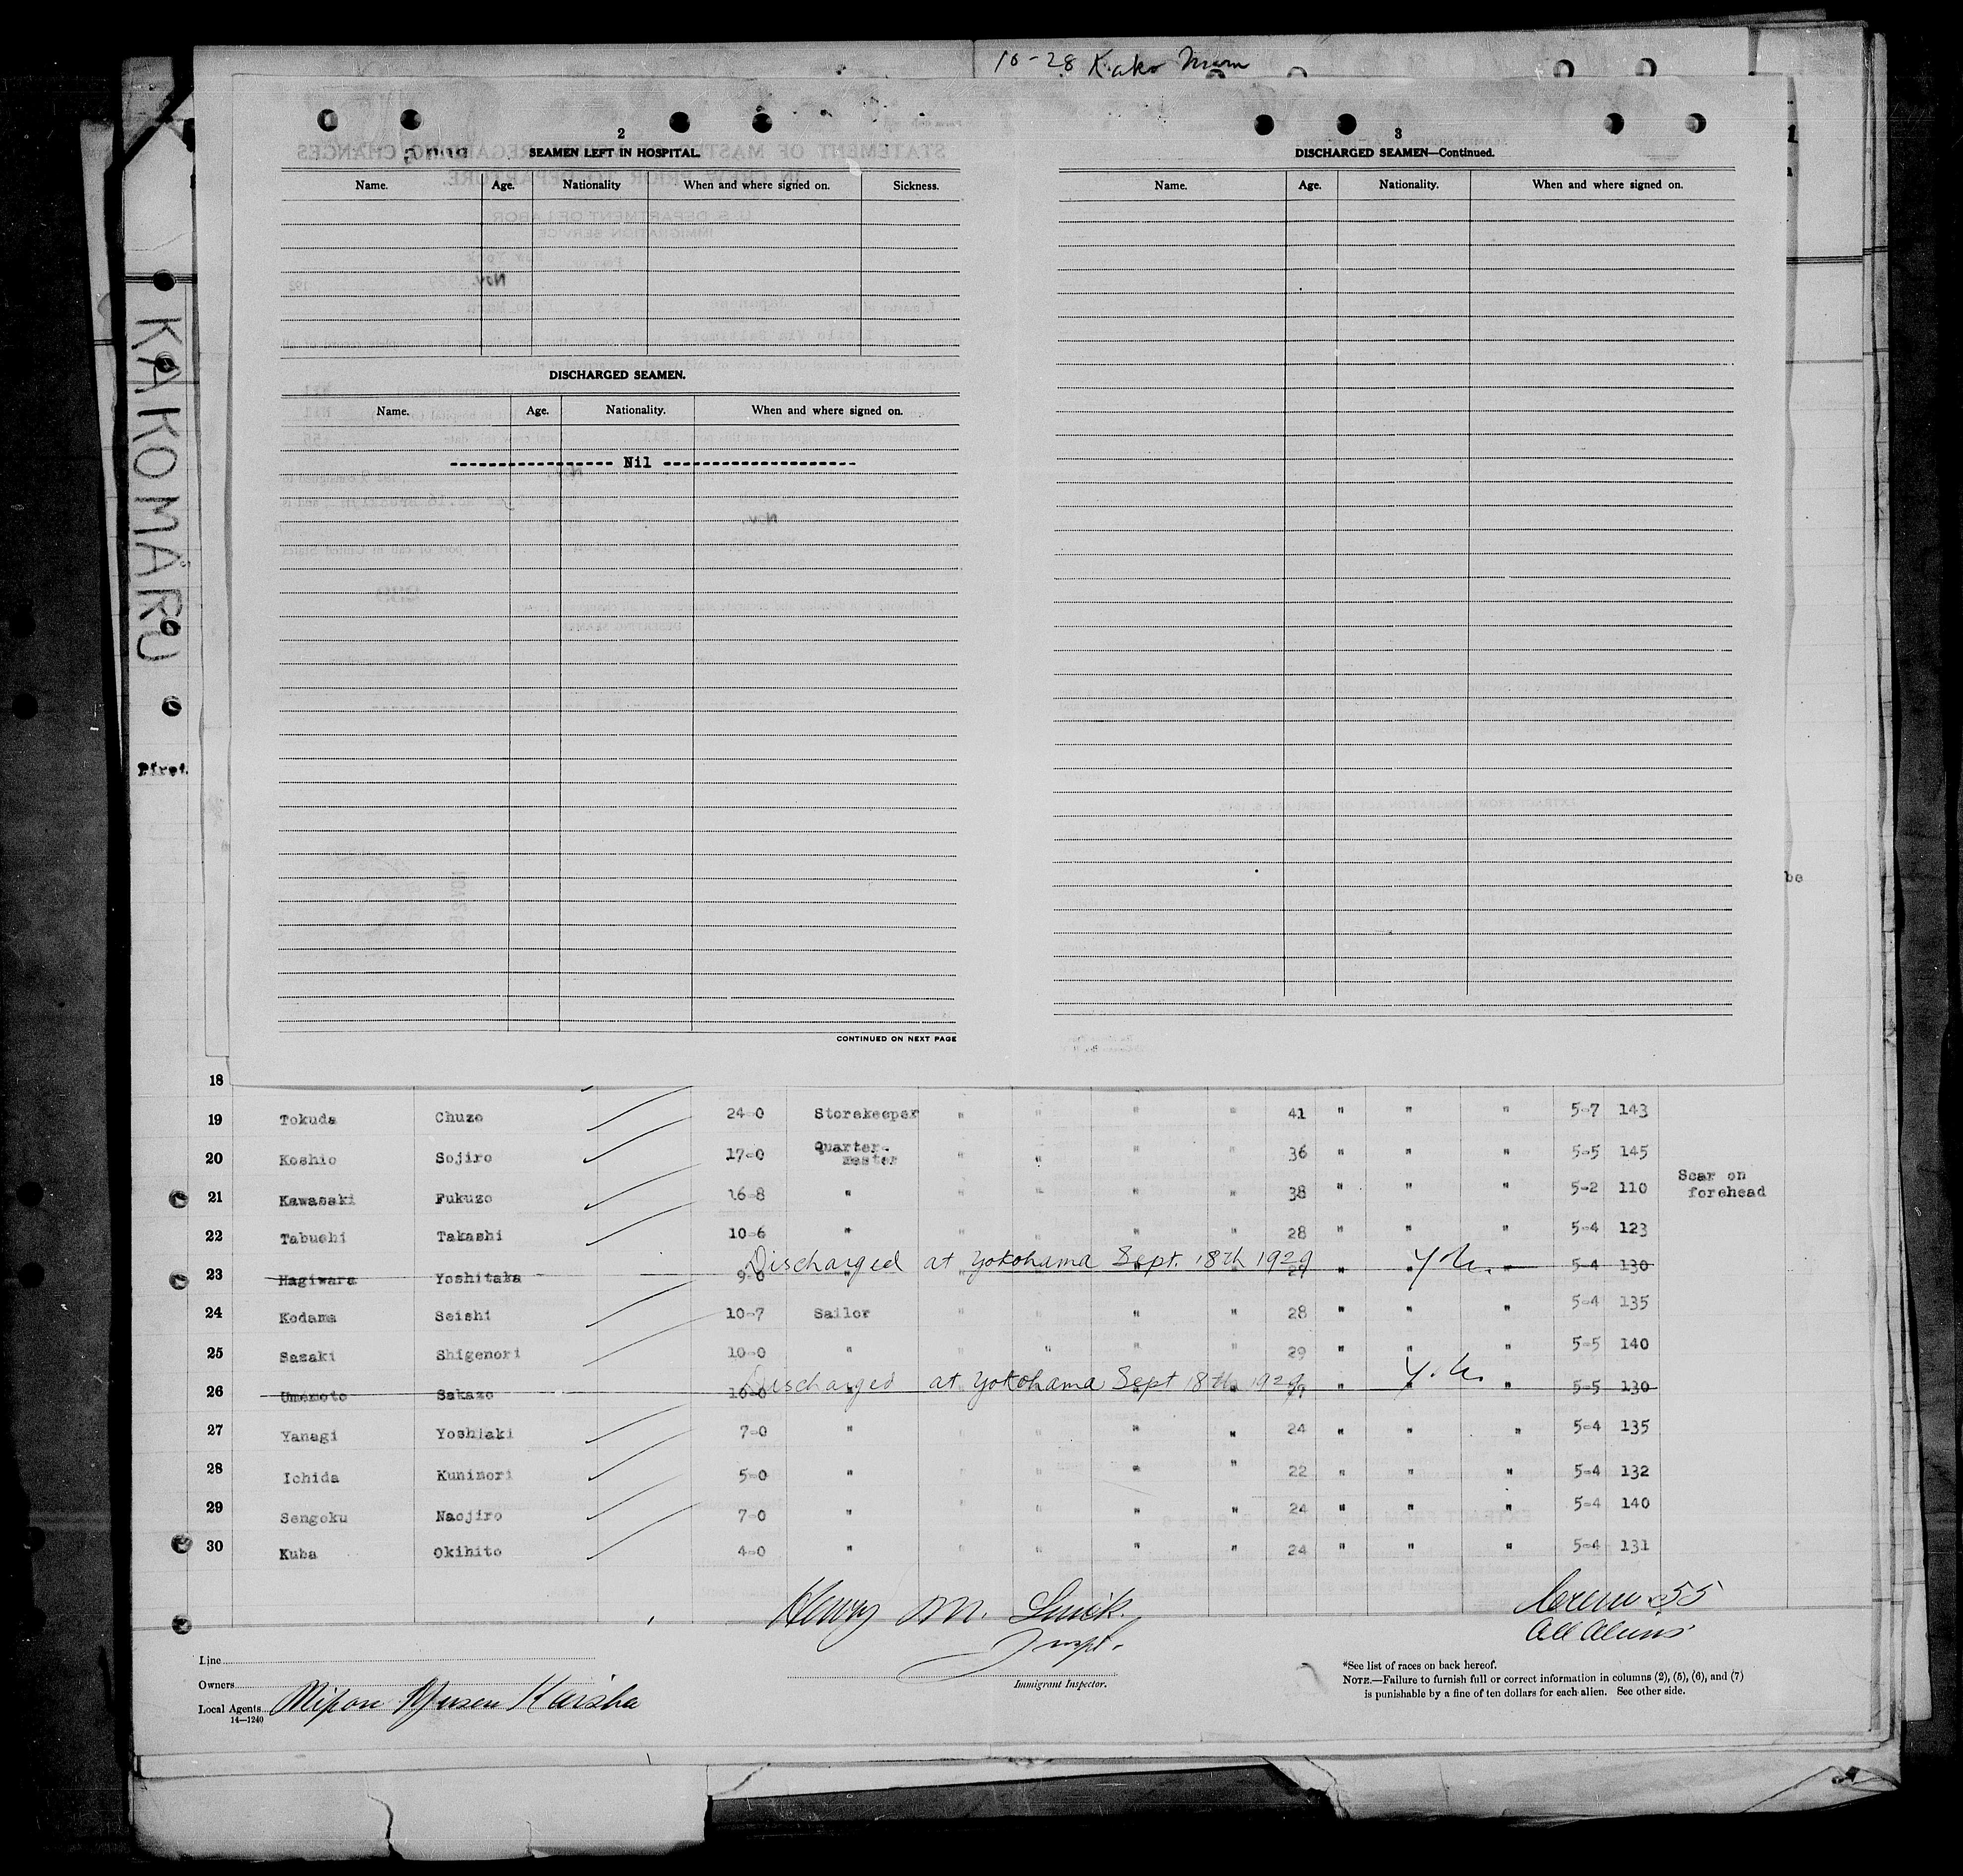 10-28 Kako Maru
KAKO MARU
First
be
2
SEAMEN LEFT IN HOSPITAL.
Name. Age. Nationality When and where signed on. Sickness.
DISCHARGED SEAMEN.
Name. Age. Nationality. When and where signed on.
Nil
CONTINUED ON NEXT PAGE
3
DISCHARGED SEAMEN—Continued.
Name. Age. Nationality. When and where signed on.
18
19 Tokuda Chuzo 24-0 Storekeeper " " " " 41 " " " 5-7 143
20 Koshio Sojiro 17-0 Quarter-master " " " " 36 " " " 5-5 145
21 Kawasaki Fukuzo 16-8 " " " " " 38 " " " 5-2 110 Scar on forehead
22 Tabuchi Takashi 10-6 " " " " " 28 " " " 5-4 123
Discharged at Yokohama Sept. 18th 1929
23 Hagiwara Yoshitaka 9-0 " 5-4 130
24 Kodama Seishi 10-7 Sailor " " " " 28 " " " 5-4 135
25 Sasaki Shigenori 10-0 " " " " " 29 " " " 5-5 140
Discharged at Yokohama Sept 18th 1929
26 Umemoto Sakazo 10-0 " 5-5 130
27 Yanagi Yoshiaki 7-0 " " " " " 24 " " " 5-4 135
28 Ichida Kuninori 5-0 " " " " " 22 " " " 5-4 132
29 Sengoku Naojiro 7-0 " " " " " 24 " " " 5-4 140
30 Kuba Okihito 4-0 " " " " " 24 " " " 5-4 131
Henry M.
Inspt.
Immigrant Inspector.
Crew 55
All Aliens
Line
Owners
Local Agents Nipon Yusen Kaisha
14—1240
*See list of races on back hereof.
NOTE.—Failure to furnish full or correct information in columns (2), (5), (6), and (7)
is punishable by a fine of ten dollars for each alien. See other side.